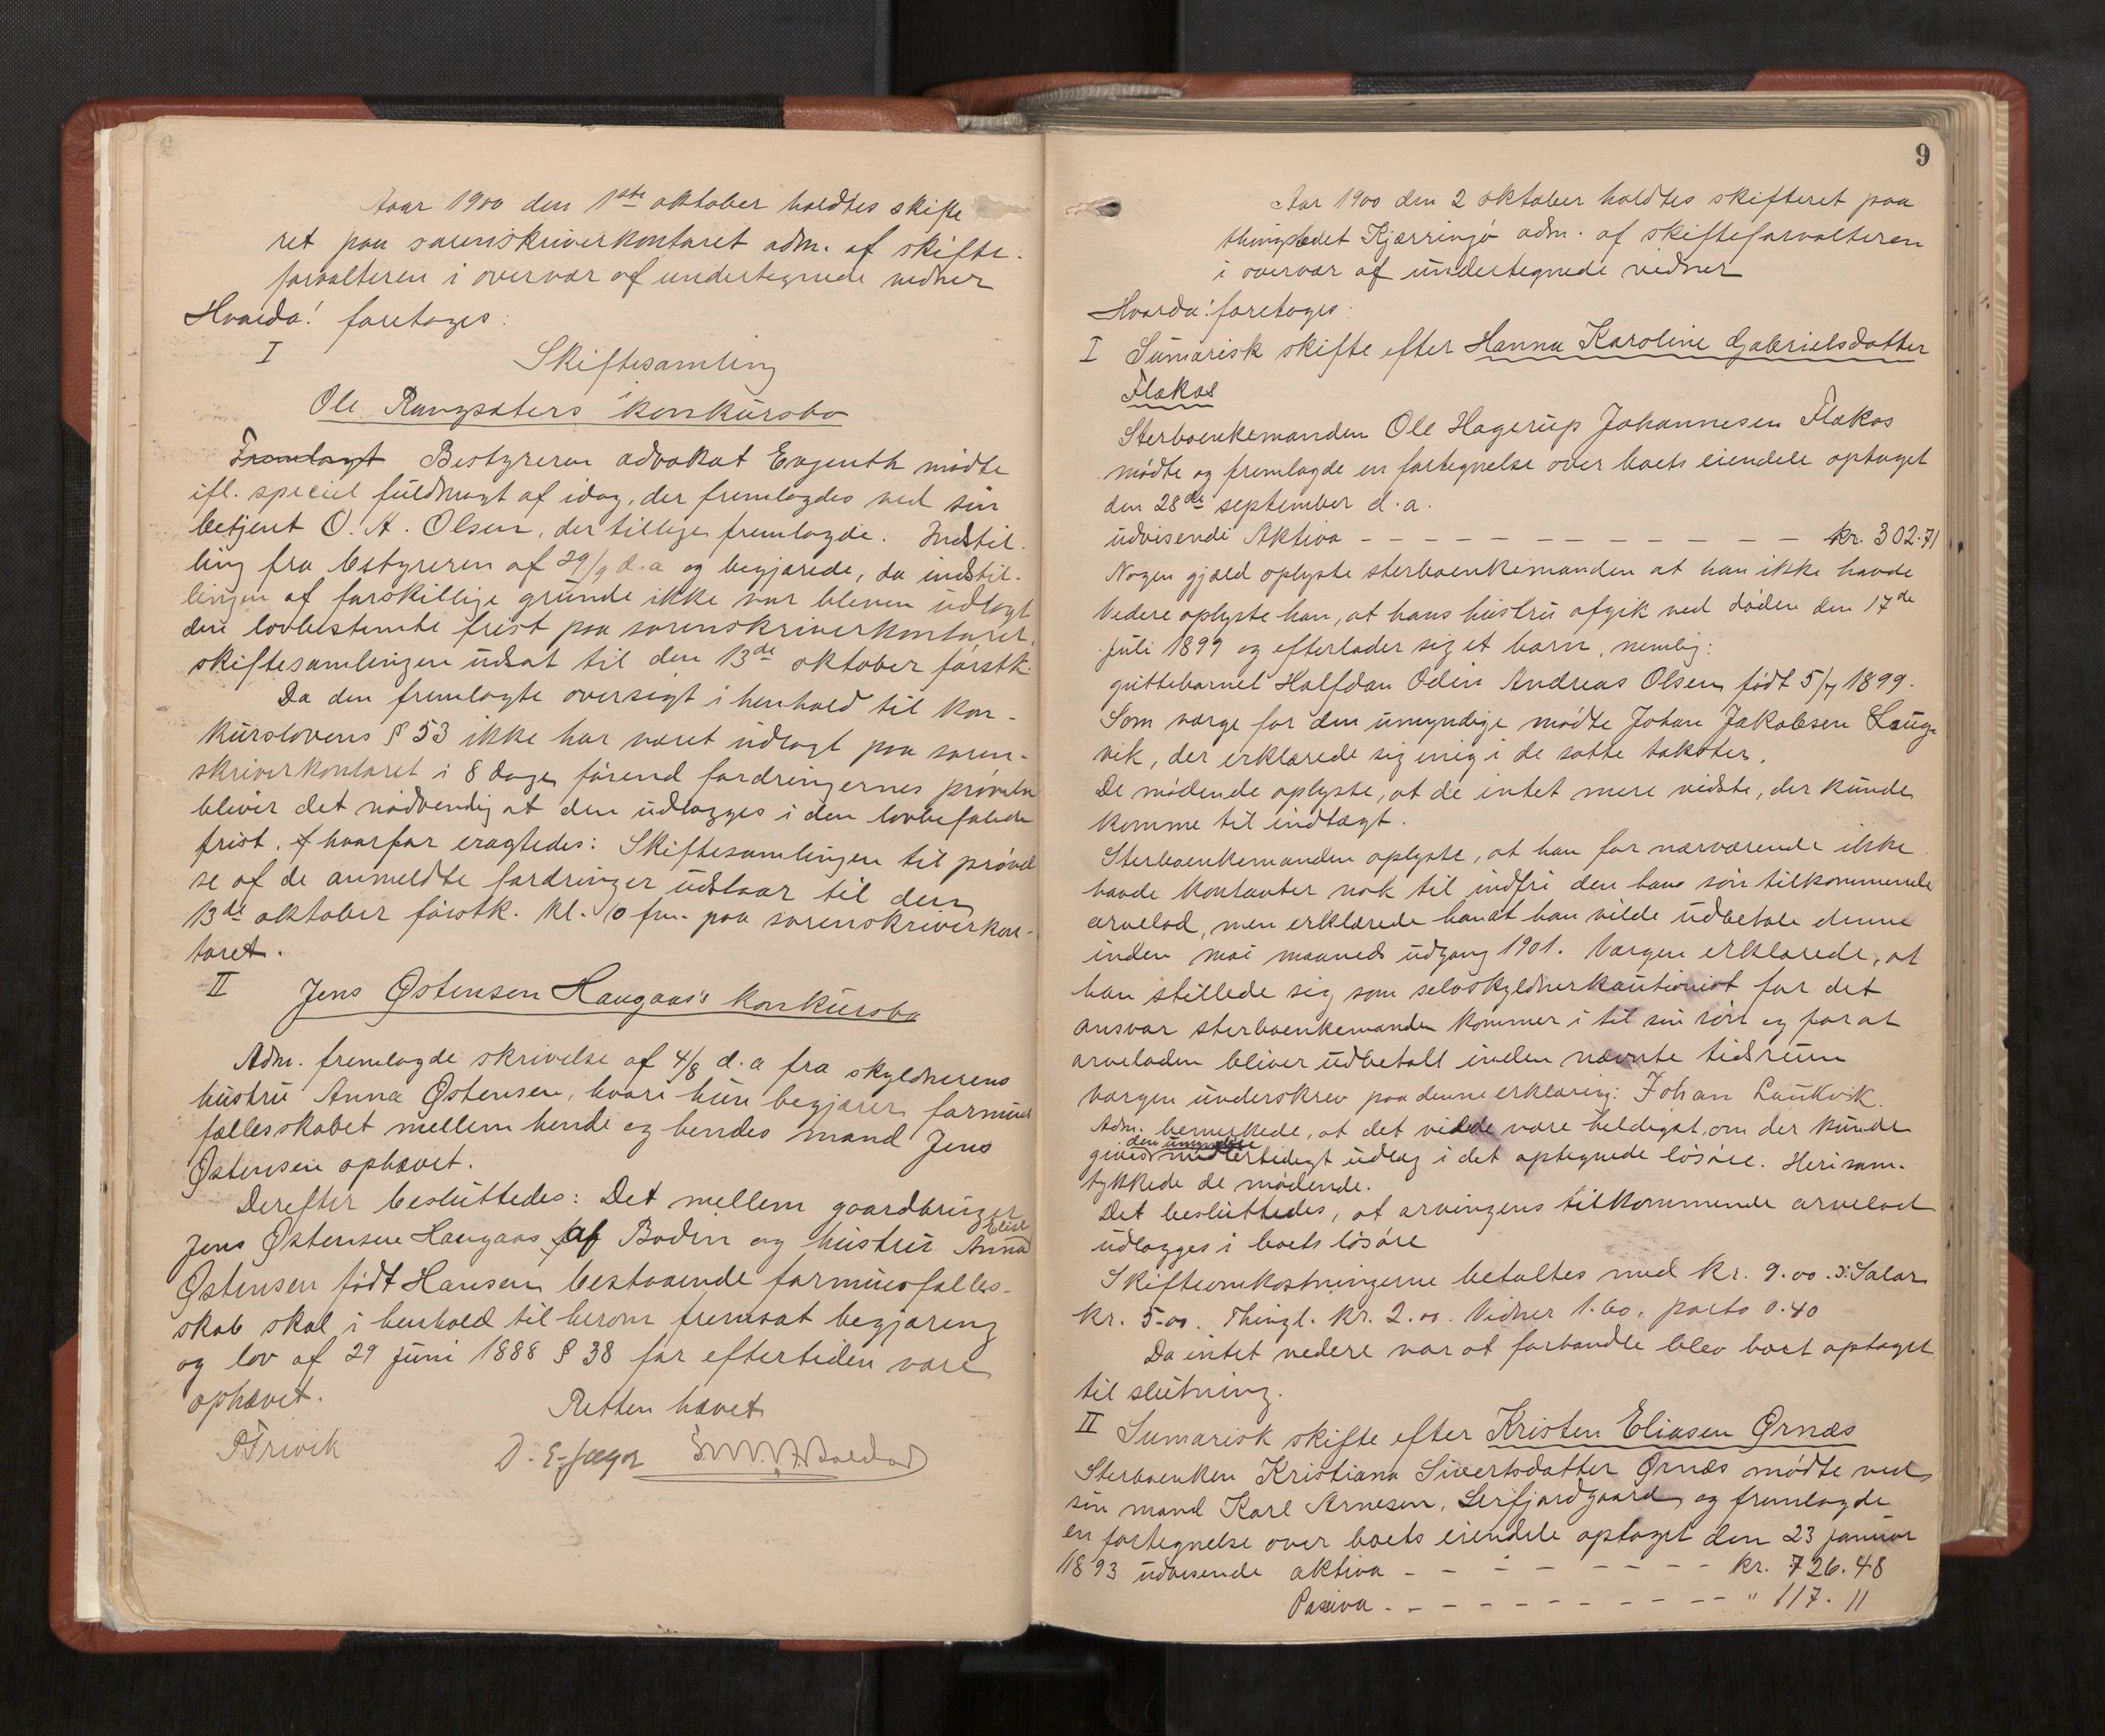 Aaar 1900 den 1ste oktober holdtes skifte
ret paa sorenskriverkontoret adm. af skifte-
forvalteren i overvær af undertegnede vidner
Hvorda! foretoges:
I Skiftesamling
i
Ole Rangsæters konkursbo
Fremlagt Bestyreren advokat Evjenth mødte
ifl. speciel fuldmagt af idag, der fremlagdes ved sin
betjent O. A. Olsen, der tillige fremlagde: Indstil-
ling fra bestyreren af 29/9 d.a og begjærede, da indstil-
lingen af forskillige grunde ikke var bleven udlagt
den lovbestemte frist paa sorenskriverkontoret,
skiftesamlingen udsat til den 13de oktober førstk.
Da den fremlagte oversigt i henhold til kon-
kurslovens § 53 ikke har været udlagt paa soren-
skriverkontoret i 8 dage førend fordringernes prøvelse
bliver det nødvendig at den udlægges i den lovbefalede
frist, hvorfor eragtedes: Skiftesamlingen til prøvel
se af de anmeldte fordringer udstaar til den
13de oktober førstk. kl. 10 fm. paa sorenskriverkon-
toret.
II Jens Østensen Haugaas's konkursbo
Adm. fremlagde skrivelse af 4/8 d.a fra skyldnerens
hustru Anna Østensen, hvori hun begjærer formues
fællesskabet mellem hende og hendes mand Jens
Østensen ophævet.
Derefter besluttedes: Det mellem gaardbruger
Jens Østensen Haugaas af Bodin og hustru Anna Elise
Østensen født Hansen bestaaende formuesfælles-
skab skal i henhold til herom fremsat begjæring
og lov af 29 juni 1888 § 38 for eftertiden være
ophævet.
Retten hævet
PTrivik D. E. Jæger
9
Aar 1900 den 2 oktober holdtes skifteret paa
thingstedet Kjærringø adm. af skifteforvalteren
i overvær af undertegnede vidner
Hvorda! foretoges:
I Sumarisk skifte efter Hanna Karoline Gabrielsdatter
Flakas
Sterboenkemanden Ole Hagerup Johannesen Flakas
mødte og fremlagde en fortegnelse over boets eiendele optaget
den 28de september d.a.
udvisende Aktiva - - - - - - - - - - - - kr. 302.71
Nogen gjæld oplyste sterboenkemanden at han ikke havde
Videre oplyste han, at hans hustru afgik ved døden den 17de
juli 1899 og efterlader sig et barn, nemlig:
guttebarnet Halfdan Odin Andreas Olsen født 5/7 1899.
Som værge for den umyndige mødte Johan Jakobsen Laug-
vik, der erklærede sig enig i de satte takster.
De mødende oplyste, at de intet mere vidste, der kunde
komme til indtægt.
Sterboenkemanden oplyste, at han for nærværende ikke
havde kontanter nok til indfri den hans søn tilkommende
arvelod, men erklærede han at han vilde udbetale denne
inden mai maaneds udgang 1901. Værgen erklærede, at
han stillede sig som selvskyldnerkautionist for det
ansvar sterboenkemanden kommer i til sin søn og for at
arveloden bliver udbetalt inden nævnte tidsrum
værgen underskrev paa denne erklæring: Johan Laukvik.
Adm. bemerkede, at det vilde være heldigst, om der kunde
gives den umyndige midlertidigt udlæg i det optegnede løsøre. Heri sam-
tykkede de mødende.
Det besluttedes, at arvingens tilkommende arvelod
udlægges i boets løsøre
Skifteomkostningerne betaltes med kr. 9.00 ɔ: Salær
kr. 5.00. Thingl. kr. 2.00. Vidner 1.60, porto 0.40
Da intet videre var at forhandle blev boet optaget
til slutning.
II Sumarisk skifte efter Kristen Eliasen Ørnæs
Sterboenken Kristiana Sivertsdatter Ørnæs mødte ved
sin mand Karl Arnesen, Lerfjordgaard, og fremlagde
en fortegnelse over boets eiendele optaget den 23 januar
1893 udvisende aktiva - - - - - - - - kr. 726.48
Pasiva - - - - - - - - - - - " 117.11